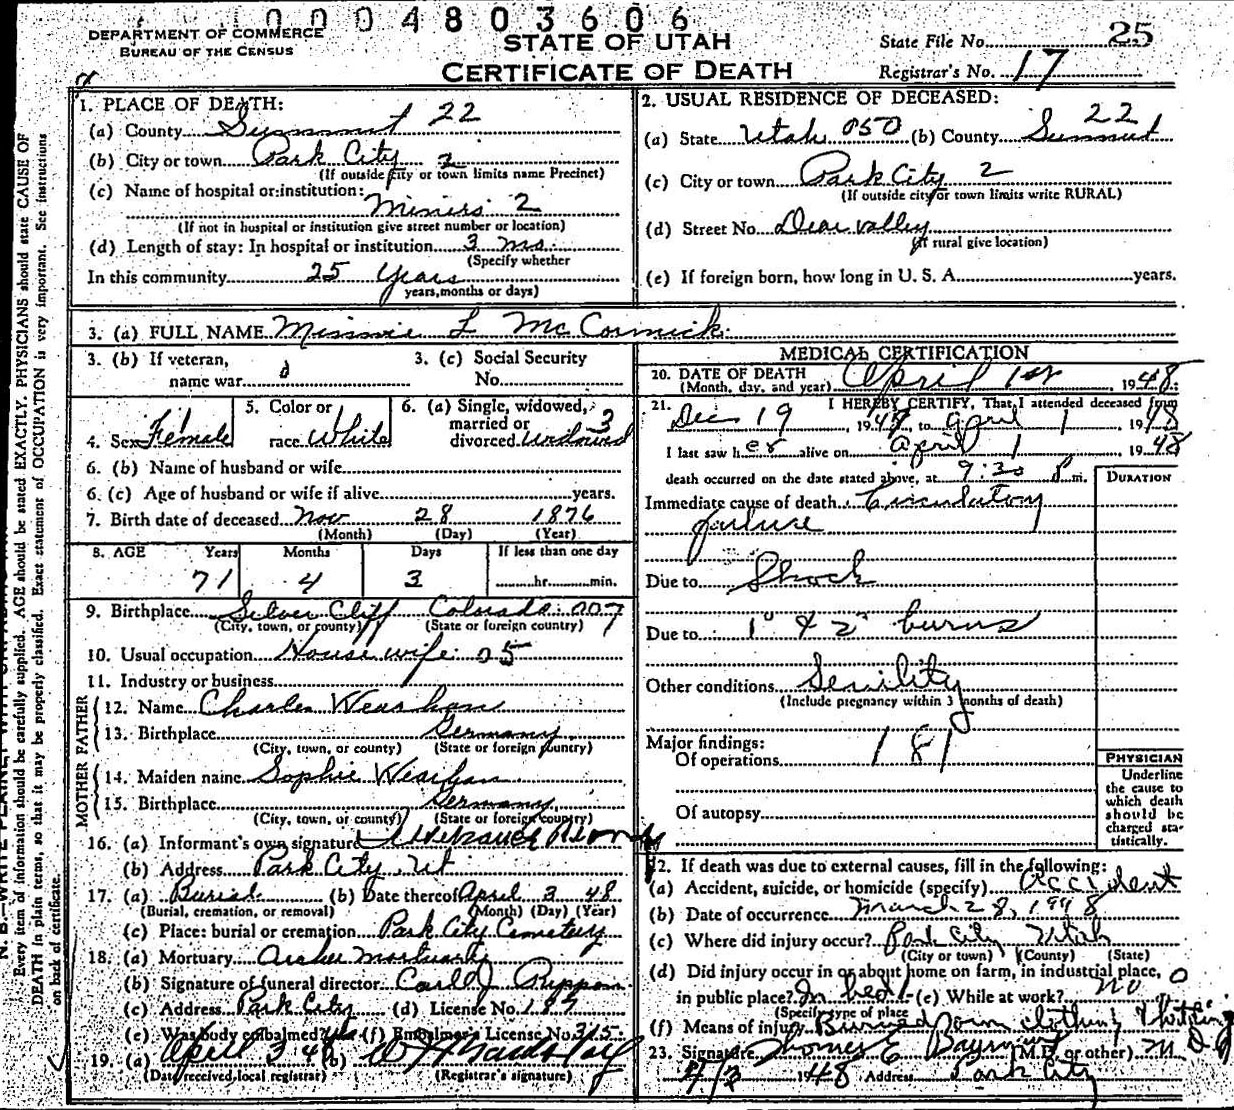 0004803606
DEPARTMENT OF COMMERCE
BUREAU OF THE CENSUS
STATE OF UTAH
CERTIFICATE OF DEATH
State File No. 25
Registrar's No. 17
1. PLACE OF DEATH:
(a) County Summit 22
(b) City or town Park City 2
(If outside city or town limits name Precinct)
(c) Name of hospital or institution:
Miners 2
(If not in hospital or institution give street number or location)
(d) Length of stay: In hospital or institution 3 mo.
(Specify whether
In this community 25 years
years, months or days)
2. USUAL RESIDENCE OF DECEASED:
(a) State Utah 050 (b) County Summit 22
(c) City or town Park City 2
(If outside city or town limits write RURAL)
(d) Street No. Dear valley
(If rural give location)
(e) If foreign born, how long in U. S. A. years.
3. (a) FULL NAME Minnie L McCormick
3. (b) If veteran,
name war
3. (c) Social Security
No.
4. Sex Female
5. Color or
race White
6. (a) Single, widowed,
married or
divorced widowed 3
6. (b) Name of husband or wife
6. (c) Age of husband or wife if alive years.
7. Birth date of deceased Nov 28 1876
(Month) (Day) (Year)
8. AGE Years Months Days If less than one day
71 4 3 hr. min.
9. Birthplace Silver Cliff Colorado 007
(City, town, or county) (State or foreign country)
10. Usual occupation House wife 05
11. Industry or business
FATHER
12. Name Charles
13. Birthplace Germany
(City, town, or county) (State or foreign country)
MOTHER
14. Maiden name Sophie
15. Birthplace Germany
(City, town, or county) (State or foreign country)
16. (a) Informant's own signature
(b) Address Park City, Ut
17. (a) Burial (b) Date thereof April 3 48
(Burial, cremation, or removal) (Month) (Day) (Year)
(c) Place: burial or cremation Park City Cemetery
18. (a) Mortuary Archer Mortuary
(b) Signature of funeral director Carl J
(c) Address Park City (d) License No. 189
(e) Was body embalmed? yes (f) Embalmers License No. 315
19. (a) April 3 48 (b)
(Date received local registrar) (Registrar's signature)
MEDICAL CERTIFICATION
20. DATE OF DEATH
(Month, day, and year) April 1st, 1948
21. I HEREBY CERTIFY, That I attended deceased from
Dec 19, 1947, to April 1, 1948
I last saw her alive on April 1, 1948
death occurred on the date stated above, at 9:30 P m.
DURATION
Immediate cause of death Circulatory
failure
Due to Shock
Due to 1° & 2° burns
Other conditions Senility
(Include pregnancy within 3 months of death)
Major findings:
Of operations 181
Of autopsy
PHYSICIAN
Underline
the cause to
which death
should be
charged sta-
tistically.
22. If death was due to external causes, fill in the following:
(a) Accident, suicide, or homicide (specify) Accident
(b) Date of occurrence March 28, 1948
(c) Where did injury occur? Park City Utah
(City or town) (County) (State)
(d) Did injury occur in or about home on farm, in industrial place, 0
in public place? In bed (e) While at work? no
(Specify type of place
(f) Means of injury Burned from clothing
23. Signature Thomas E (M.D. or other) M D
4/3 1948 Address Park City
Every item of information should be carefully supplied. AGE should be stated EXACTLY. PHYSICIANS should state CAUSE OF
DEATH in plain terms, so that it may be properly classified. Exact statement of OCCUPATION is very important. See instructions
on back of certificate.